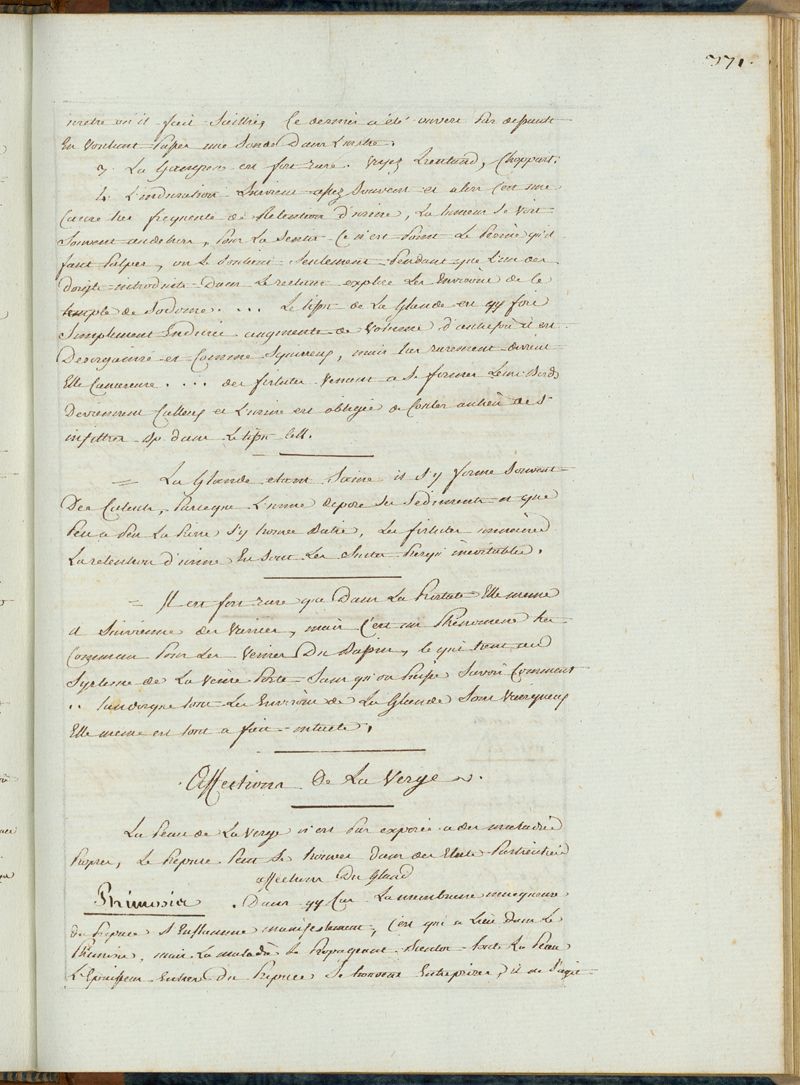 371.
où il fait Saillie, Ce dernier a été ouvert Par
En Voulant passer une Sonde Dans L'uretre.
3. La Gangren est fort rare. Voyez Lieutaud, Choppart.
4. L'induration Survient assez Souvent et alors C'est une
Cause tres frequente de Retention d'urine, La tumeur Se Voit
Souvent au dehors, Pour La Sentir Ce n'est Point Le Perinée qu'il
faut Palper, on Le Soutient Seulement Pendant que L'un des
doigts introduits Dans Le rectum explore Les Environs de le
de . . . . Le tissu de La Glande est qq fois
Simplement Endurci augmenté de Volume d'autrefois il est
Desorganisé et Comme Squirreux, mais tres rarement devient
Elle Cancereuse . . . . des fistules Venant a Se former Leurs Bords
Deviennent Calleux et L'urine est obligée de Couler au lieu de S'
infiltrer dans Le tissu Cell.
= La Glande etant Saine il S'y forme Souvent
Des Calculs, Parceque L'urine depose Ses Sediments et que
Peu a Peu La Pierre S'y trouve Batie, Les fistules
La retention d'urine En Sont Les Suites Presq. inevitables.
= Il est fort rare que Dans La Prostate Elle meme
il Survienne des Varices, mais C'est un Phenomene tres
Commun Pour Les Veines Du Bassin, Ce qui tient au
Systeme de La Veine Porte Sans qu'on Puisse Savoir Comment
. . tandis que tous Les Environs de La Glande Sont Variqueux
Elle meme est tout a fait intacte.
Affections De La Verge.
La Peau de La Verge n'est Pas exposée a des maladies
Propres, Le Prepuce Peut Se trouver Dans des Etats Particuliers
affections Du Gland
Phimosis. Dans qq Cas La membrane muqueuse
du Prepuce S'Enflamme manifestement, C'est qui a Lieu dans Le
Phimosis, mais La maladie Se Propageant Bientot toute La Peau
L'Epaisseur Entiere Du Prepuce Se trouvent Entreprises, il ne S'agit